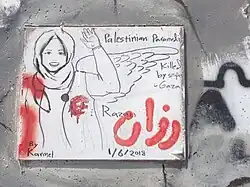 Palestinian Paramedic
Killed
by sniper
- Gaza
Razan
رزان
By
Karmel
1/6/2018